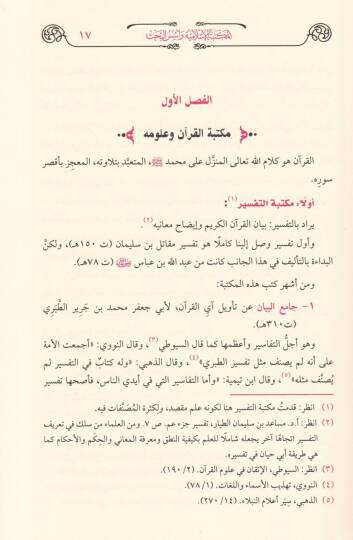 المكتبة الإسلامية وأسس البحث ١٧
الفصل الأول
مكتبة القرآن وعلومه
القرآن هو كلام الله تعالى المنزَّل على محمد ﷺ، المتعبَّد بتلاوته، المعجِز بأقصر
سوره.
أولًا: مكتبة التفسير(١):
يراد بالتفسير: بيان القرآن الكريم وإيضاح معانيه(٢).
وأول تفسير وصل إلينا كاملًا هو تفسير مقاتل بن سليمان (ت ١٥٠هـ)، ولكنَّ
البداءة بالتأليف في هذا الجانب كانت من عبد الله بن عباس (ت ٧٨هـ).
ومن أشهر كتب هذه المكتبة:
١- جامع البيان عن تأويل آي القرآن، لأبي جعفر محمد بن جَرير الطَّبَري
(ت ٣١٠هـ).
وهو أجلُّ التفاسير وأعظمها كما قال السيوطي(٣)، وقال النووي: «أجمعت الأمة
على أنه لم يصنف مثل تفسير الطبري»(٤)، وقال الذهبي: «وله كتابٌ في التفسير لم
يُصنَّف مثله»(٥)، وقال ابن تيمية: «وأما التفاسير التي في أيدي الناس، فأصحها تفسير
(١) انظر: قدمتُ مكتبة التفسير هنا لكونه علم مقصد، ولكثرة المصَنَّفات فيه.
(٢) انظر: أ.د. مساعد بن سليمان الطيار، تفسير جزء عم. ص ٧. ومن العلماء من سلك في تعريف
التفسير اتجاهًا آخر بجعله شاملًا للعلم بكيفية النطق ومعرفة المعاني والحِكَم والأحكام كما
هي طريقة أبي حيان في تفسيره.
(٣) انظر: السيوطي، الإتقان في علوم القرآن. (٢/ ١٩٠).
(٤) النووي، تهذيب الأسماء واللغات. (١/ ٧٨).
(٥) الذهبي، سِيَر أعلام النبلاء. (١٤/ ٢٧٠).